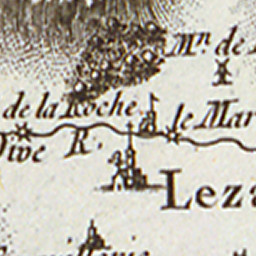 Mn. de
de la Roche
le Mar
Vive R.
Leza